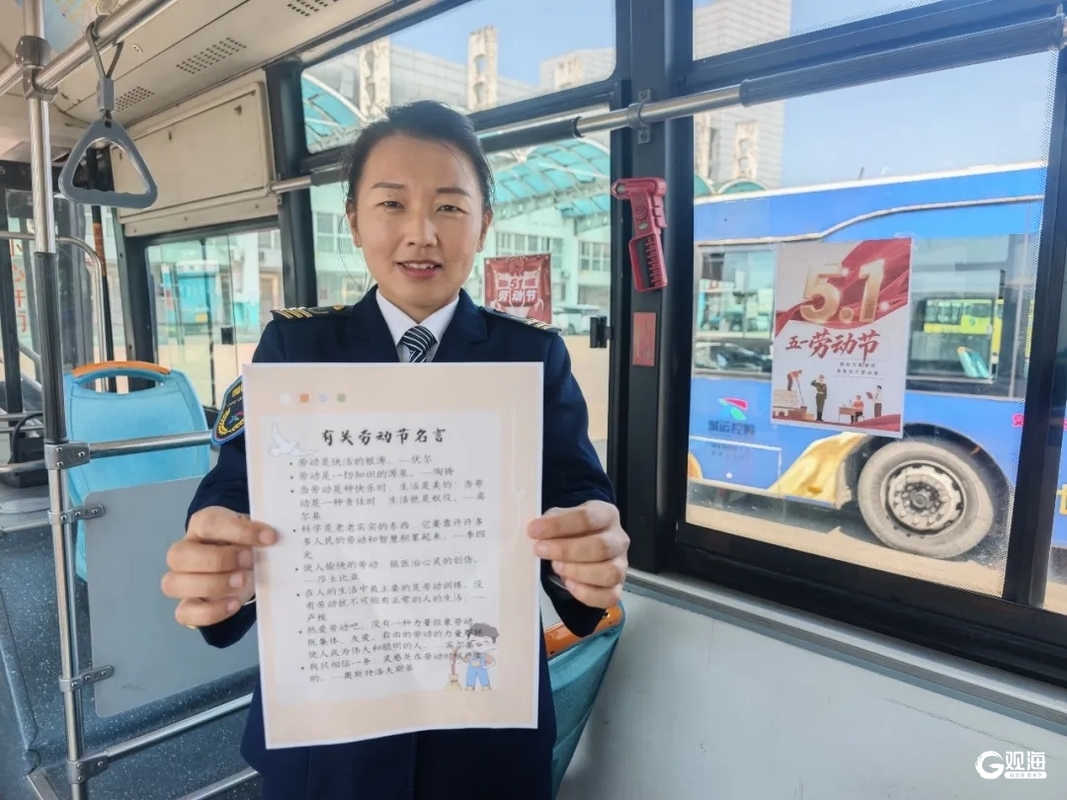 有关劳动节名言
劳动是快活的根源。—伏尔
劳动是一切知识的源泉。—陶铸
当劳动是种快乐时，生活是美的；当劳
动是一种责任时，生活就是奴役。—高
尔基
科学是老老实实的东西，它要靠许许多
多人民的劳动和智慧积累起来。—李四
光
使人愉快的劳动，能医治心灵的创伤。
—莎士比亚
在人的生活中最主要的是劳动训练。没
有劳动就不可能有正常的人的生活。—
卢梭
热爱劳动吧。没有一种力量能象劳动，
既集体、友爱、自由的劳动的力量那样
使人成为伟大和聪明的人。
我只相信一条：灵感是在劳动时候产生
的。—奥斯特洛夫斯基
5.1
劳动节
5.1
五一劳动节
城运控股
观海